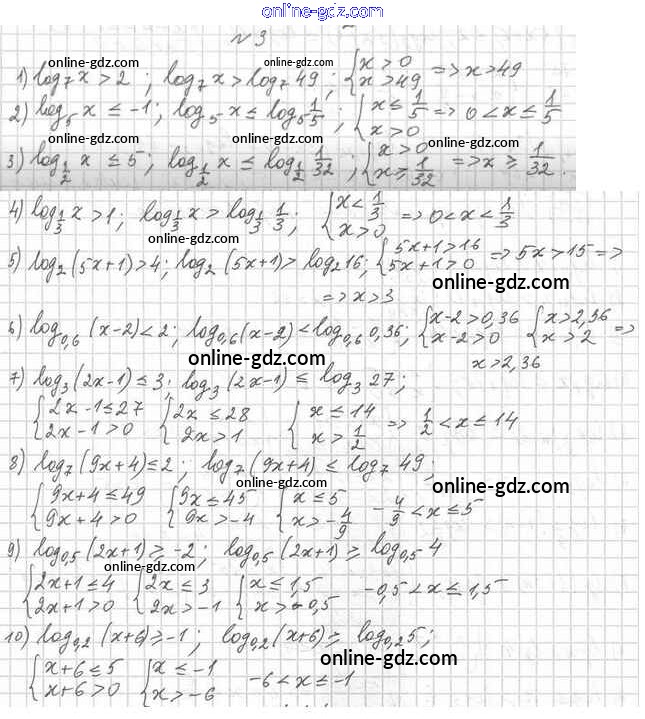 online-gdz.com
№ 3
online-gdz.com
online-gdz.com online-gdz.com
1) log₇ x > 2 ; log₇ x > log₇ 49 ; { x > 0 x > 49 => x > 49
2) log₅ x ≤ -1 ; log₅ x ≤ log₅ 1/5 ; { x ≤ 1/5 x > 0 => 0 < x ≤ 1/5
online-gdz.com online-gdz.com online-gdz.com
3) log_{1/2} x ≤ 5 ; log_{1/2} x ≤ log_{1/2} 1/32 ; { x > 0 x ≥ 1/32 => x ≥ 1/32 .
4) log_{1/3} x > 1 ; log_{1/3} x > log_{1/3} 1/3 ; { x < 1/3 x > 0 => 0 < x < 1/3
online-gdz.com
5) log₂ (5x+1) > 4 ; log₂ (5x+1) > log₂ 16 ; { 5x+1 > 16 5x+1 > 0 => 5x > 15 =>
online-gdz.com
=> x > 3
6) log₀,₆ (x-2) < 2 ; log₀,₆ (x-2) < log₀,₆ 0,36 ; { x-2 > 0,36 x-2 > 0 { x > 2,36 x > 2 =>
online-gdz.com
x > 2,36
7) log₃ (2x-1) ≤ 3 ; log₃ (2x-1) ≤ log₃ 27 ;
{ 2x-1 ≤ 27 2x-1 > 0 { 2x ≤ 28 2x > 1 { x ≤ 14 x > 1/2 => 1/2 < x ≤ 14
8) log₇ (9x+4) ≤ 2 ; log₇ (9x+4) ≤ log₇ 49 ;
online-gdz.com
{ 9x+4 ≤ 49 9x+4 > 0 { 9x ≤ 45 9x > -4 { x ≤ 5 x > -4/9 -4/9 < x ≤ 5
9) log₀,₅ (2x+1) ≥ -2 ; log₀,₅ (2x+1) ≥ log₀,₅ 4
online-gdz.com
{ 2x+1 ≤ 4 2x+1 > 0 { 2x ≤ 3 2x > -1 { x ≤ 1,5 x > -0,5 -0,5 < x ≤ 1,5
10) log₀,₂ (x+6) ≥ -1 ; log₀,₂ (x+6) ≥ log₀,₂ 5 ;
online-gdz.com
{ x+6 ≤ 5 x+6 > 0 { x ≤ -1 x > -6 -6 < x ≤ -1
online-gdz.com